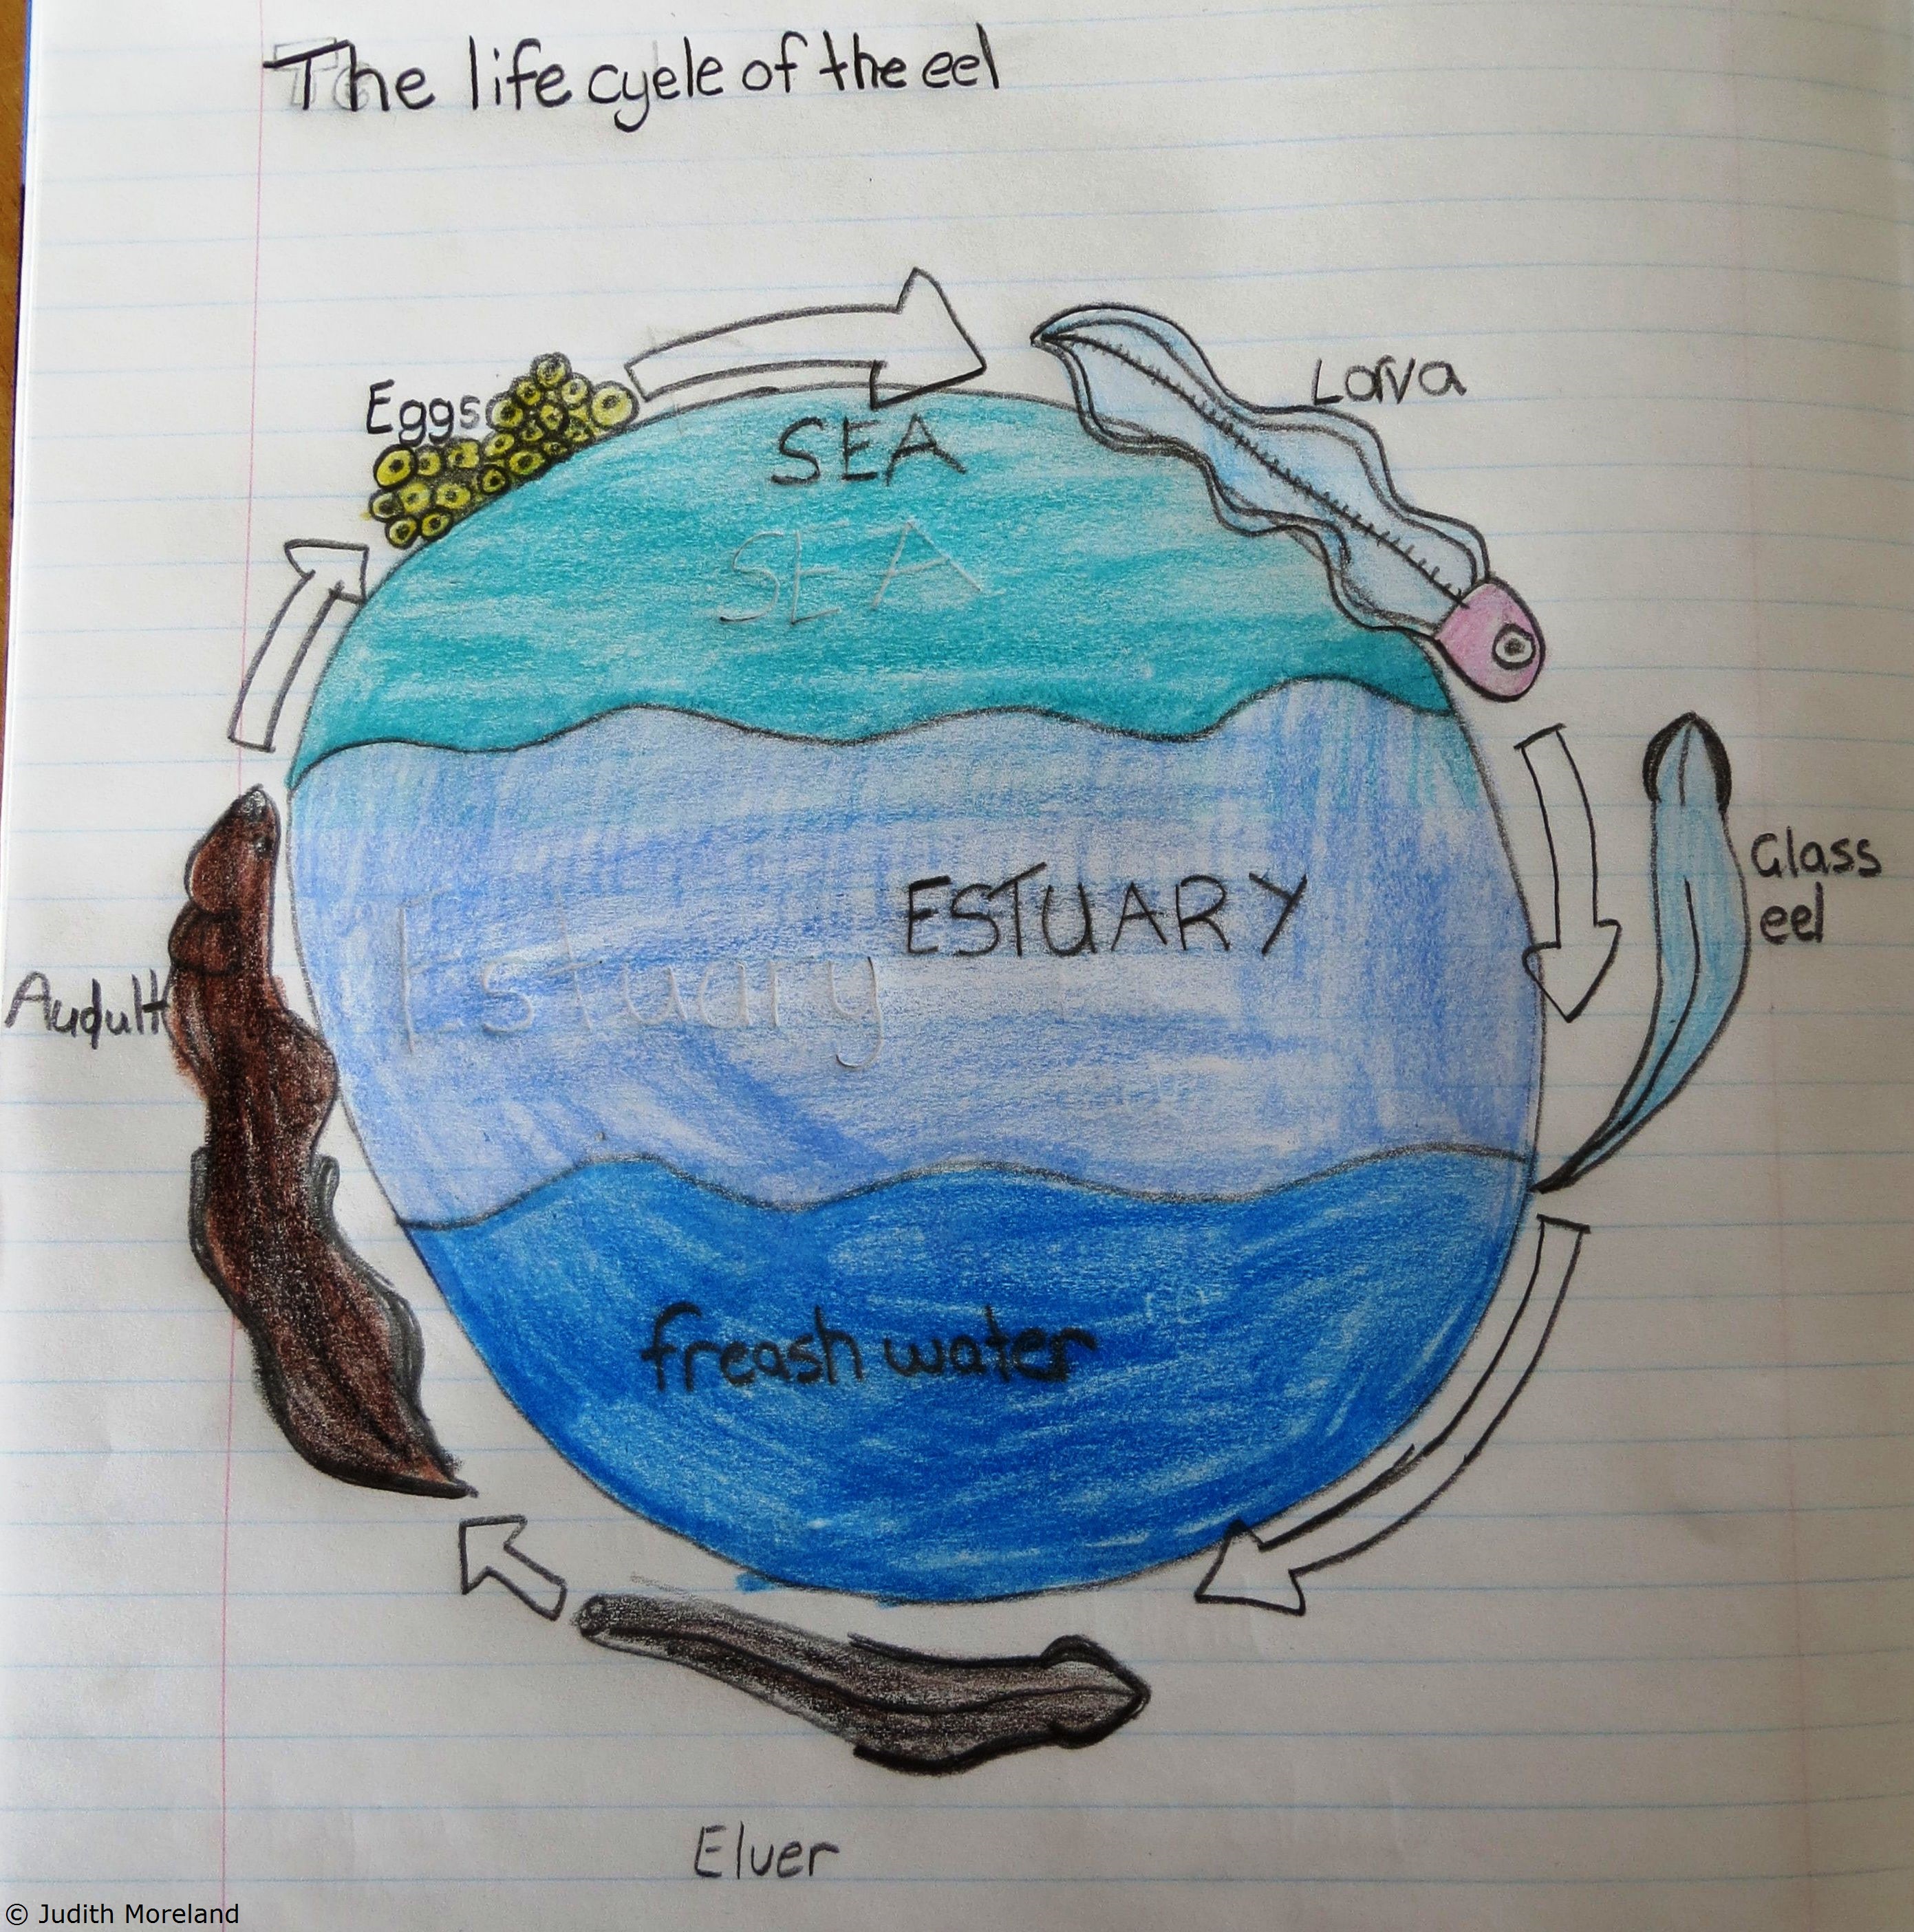 The life cycle of the eel
Eggs
Larva
SEA
SEA
Glass
eel
ESTUARY
Estuary
Audult
freash water
Eluer
© Judith Moreland